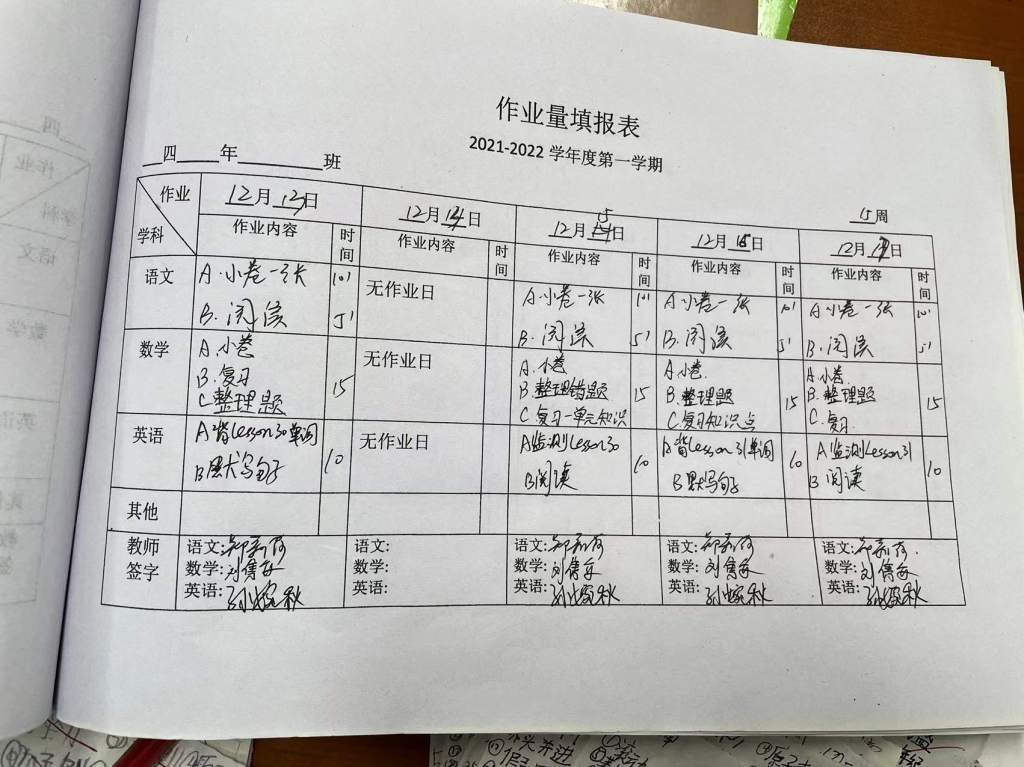 作业量填报表
2021-2022 学年度第一学期
四 年 班
15周
作业
学科
12月13日
12月14日
12月15日
12月16日
12月17日
作业内容 时间
作业内容 时间
作业内容 时间
作业内容 时间
作业内容 时间
语文
A.小卷一张 10'
B.阅读 5'
无作业日
A.小卷一张 10'
B.阅读 5'
A.小卷一张 10'
B.阅读 5'
A.小卷一张 10'
B.阅读 5'
数学
A.小卷
B.复习
C整理题
15
无作业日
A.小卷
B.整理错题
C复习一单元知识
15
A.小卷.
B.整理题
C.复习知识点
15
A.小卷.
B.整理题
C.复习.
15
英语
A背Lesson30单词
B默写句子
10
无作业日
A监测Lesson30
B阅读
10
A背Lesson31单词
B默写句子
10
A监测Lesson31
B阅读
10
其他
教师
签字
语文:
数学:刘
英语:
语文:
数学:
英语:
语文:
数学:刘
英语:
语文:
数学:刘
英语:
语文:
数学:刘
英语: